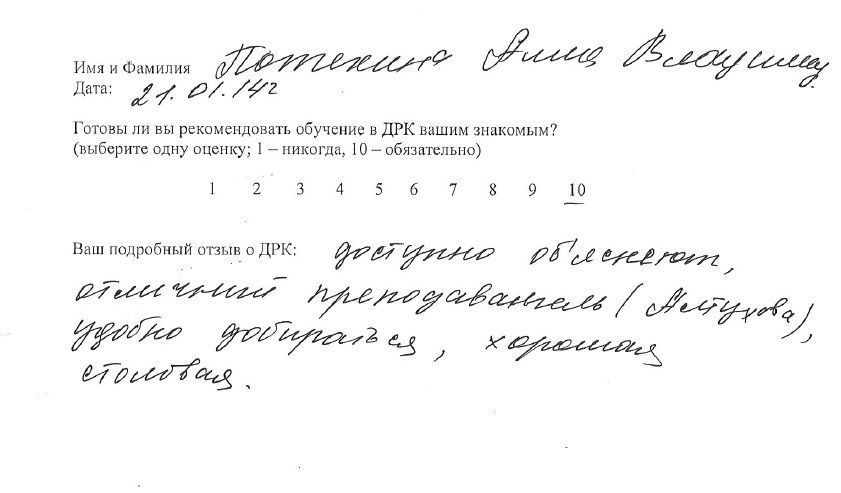 Имя и Фамилия Потехина Алла Владимир
Дата: 21.01.14г
Готовы ли вы рекомендовать обучение в ДРК вашим знакомым?
(выберите одну оценку; 1 – никогда, 10 – обязательно)
1 2 3 4 5 6 7 8 9 10
Ваш подробный отзыв о ДРК: доступно объясняют,
отличный преподаватель (Алтухова),
удобно добираться, хорошая
столовая.